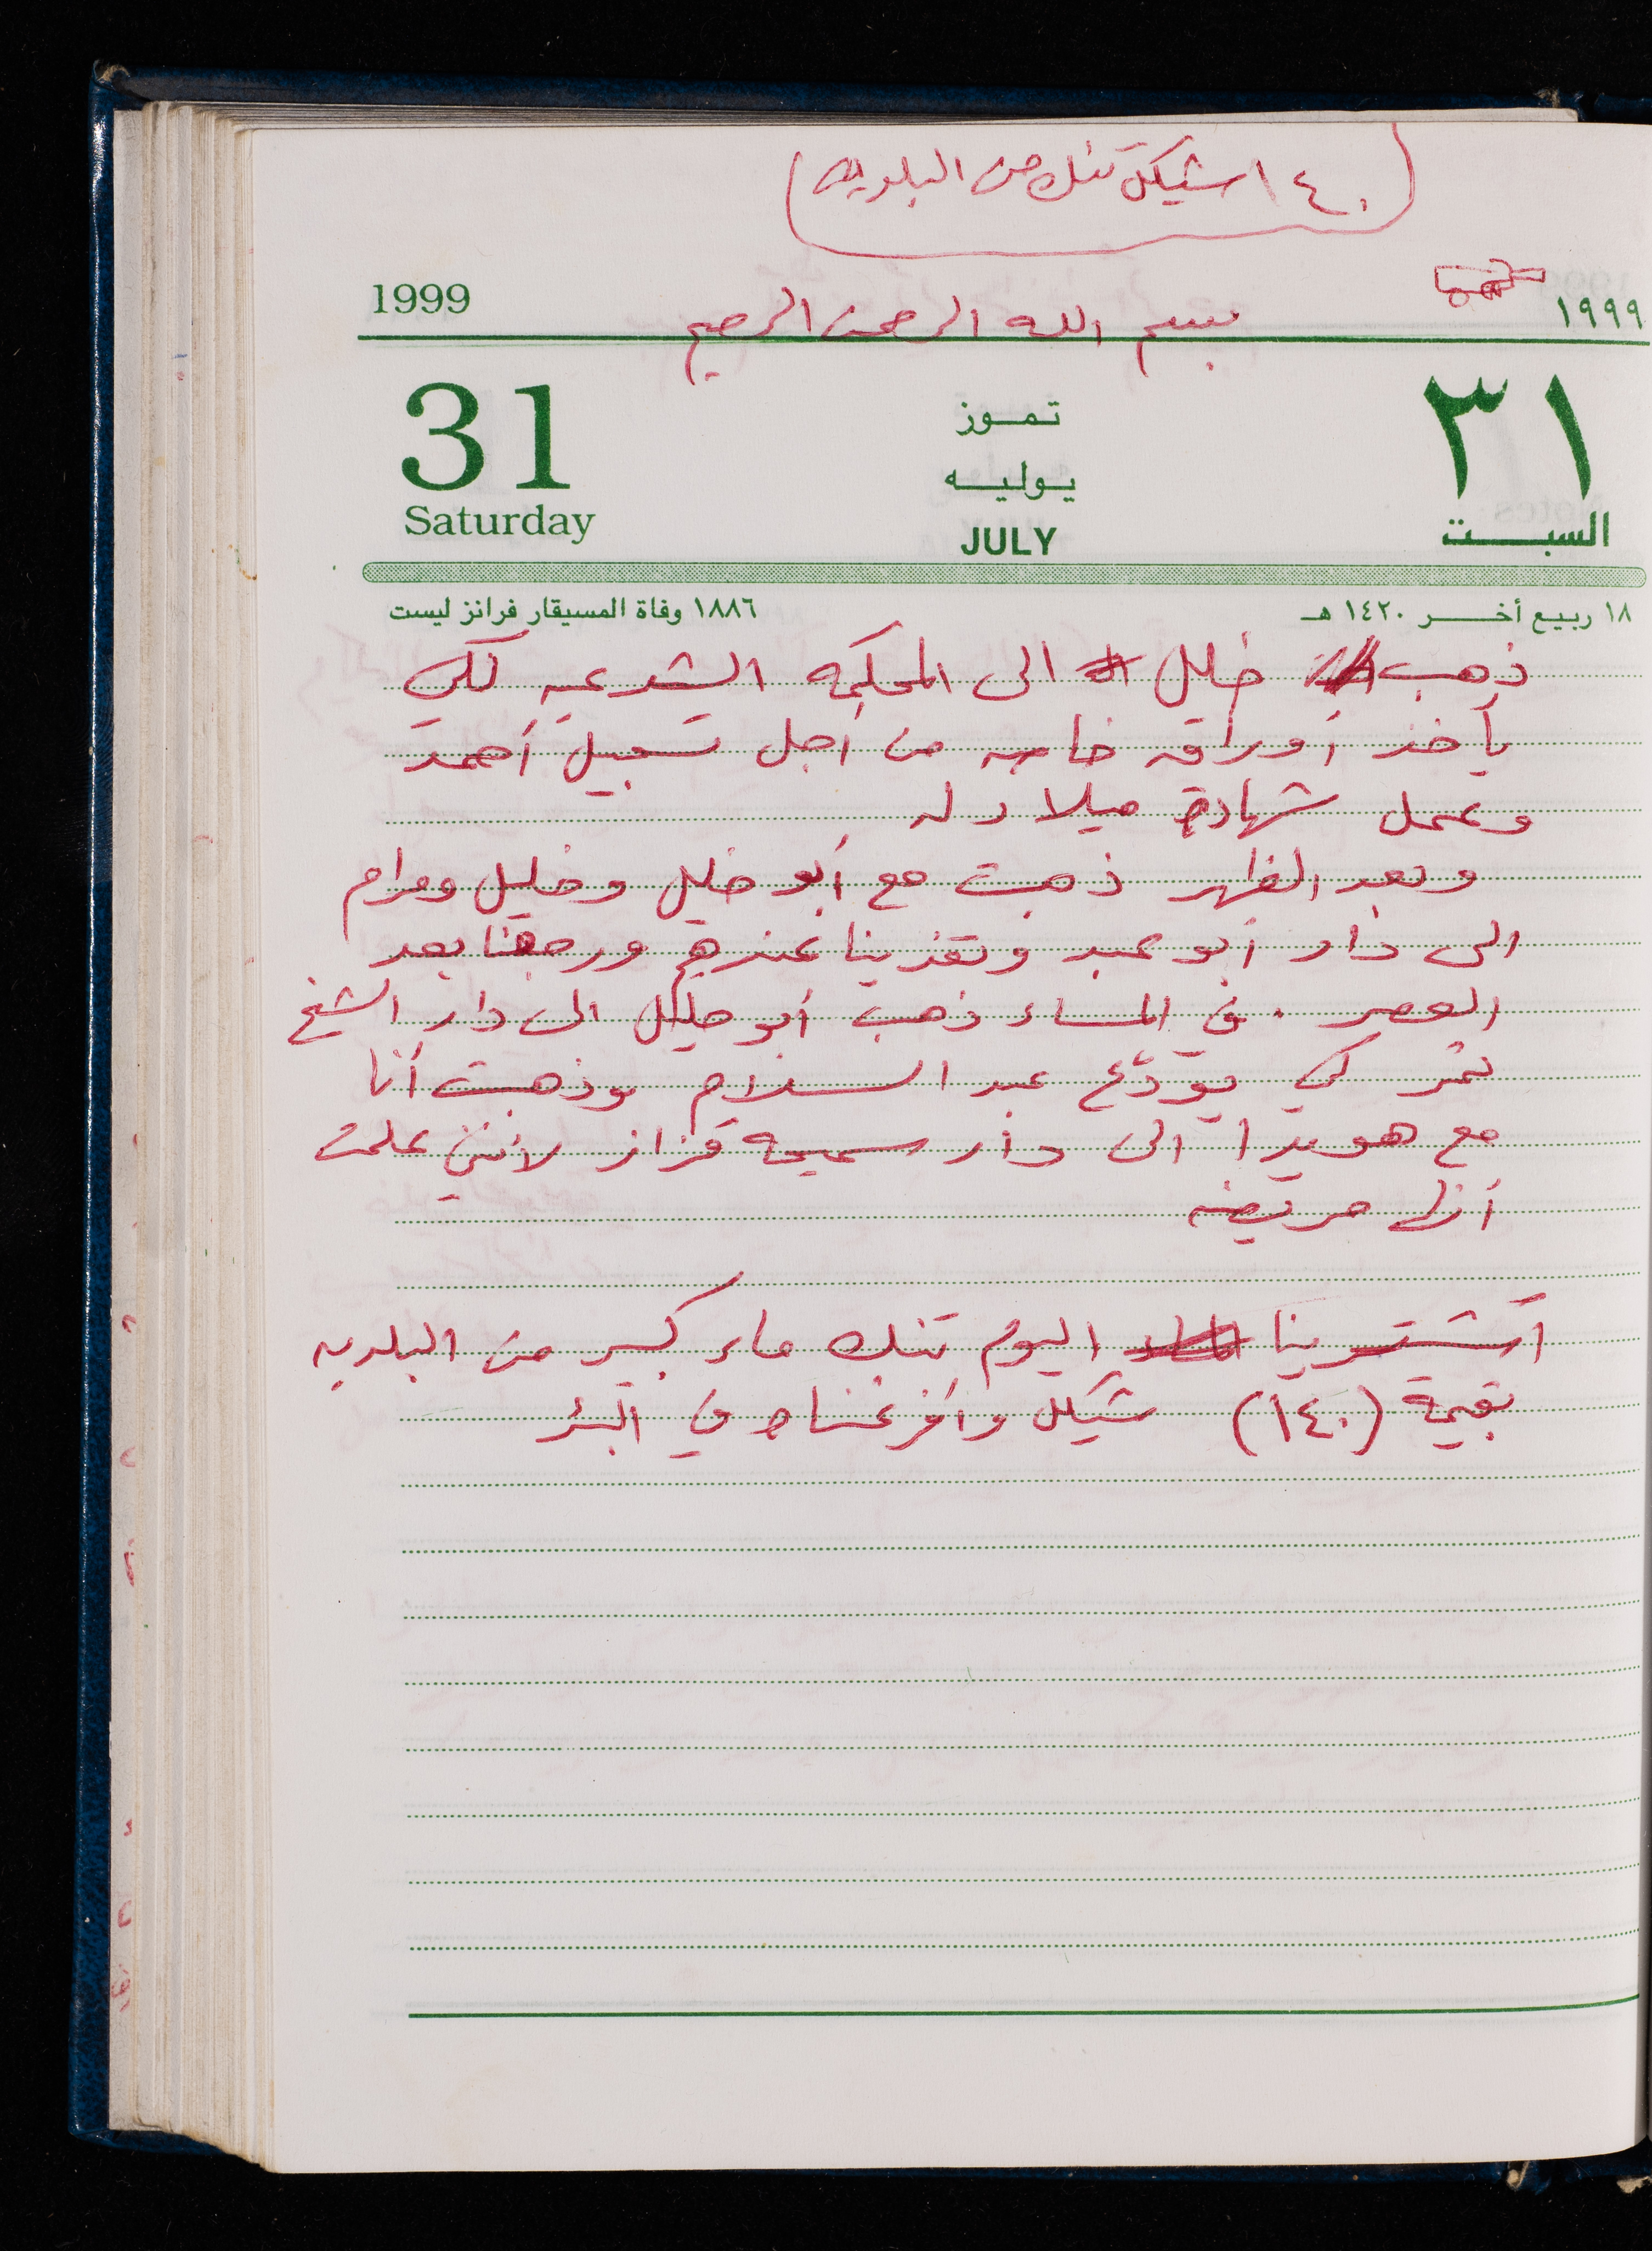 ١٤٠ شيكل تنك من البلديه
1999
١٩٩٩
بسم الله الرحمن الرحيم
31
تمـوز
٣١
يـوليـه
Saturday
JULY
السبـــت
١٨٨٦ وفاة المسيقار فرانز ليست
١٨ ربيع أخـــر ١٤٢٠ هـ
ذهب خليل الى المحكمه الشرعيه لكي
يأخذ أوراقه خاصه من أجل تسجيل أحمد
وعمل شهادة ميلاد له
وبعد الظهر ذهبت مع أبو خليل وخليل ومرام
الى دار أبو عبد وتغذينا عندهم ورجعنا بعد
العصر . في المساء ذهب أبو خليل الى دار الشيخ
نمر كي يودّع عبد السلام وذهبت أنا
مع هويدا الى دار سميحه قزاز لأنني علمت
أنها مريضه
أشترينا اليوم تنك ماء كبير من البلديه
بقيمة (١٤٠) شيكل وأفرغناه في البئر